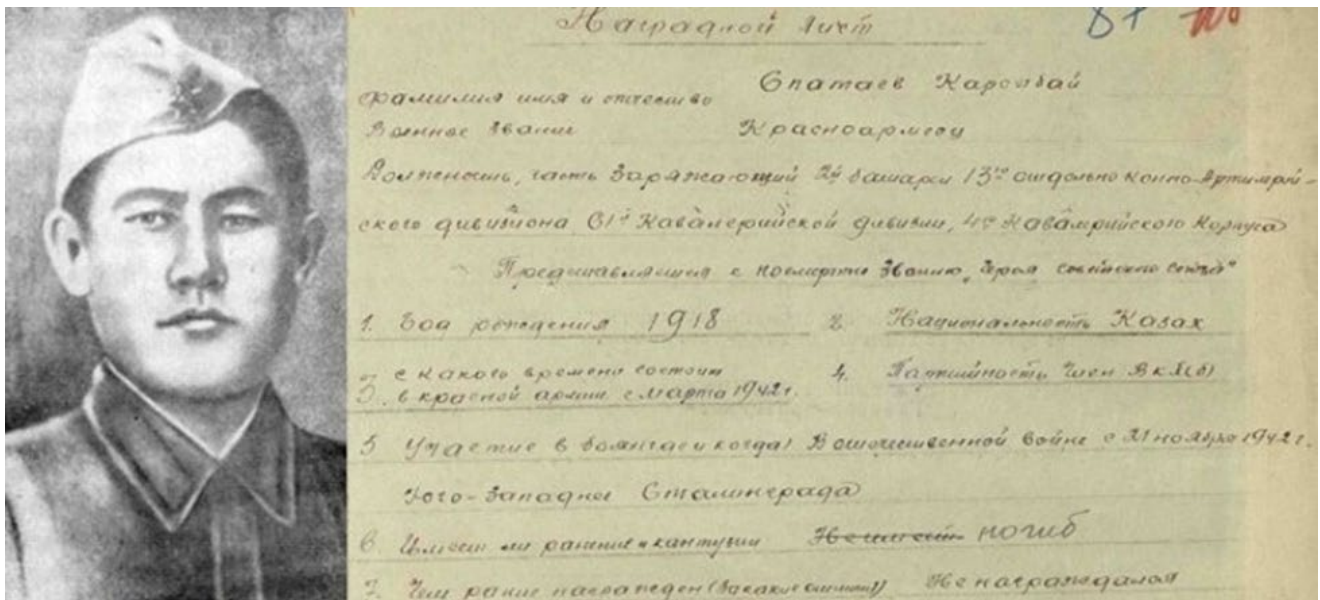 Наградной лист
87
фамилия имя и отчество Спатаев Карсыбай
Военное звание Красноармеец
Должность, часть Заряжающий 2й батареи 13го отдельно конно-Артиллерий-
ского дивизиона 61й Кавалерийской дивизии, 4го Кавалерийского Корпуса
Представляется к посмертно званию „Героя советского союза"
1. Год рождения 1918 2. Национальность Казах
3. с какого времени состоит 4. Партийность Член ВКП(б)
в красной армии с марта 1942 г.
5 Участие в боях (где и когда) В отечественной войне с 21 ноября 1942 г.
Юго-Западнее Сталинграда
6. Имеет ли ранение и кантузии Не имеет погиб
7. Чем ранее награжден (за какие отличия) Не награждался